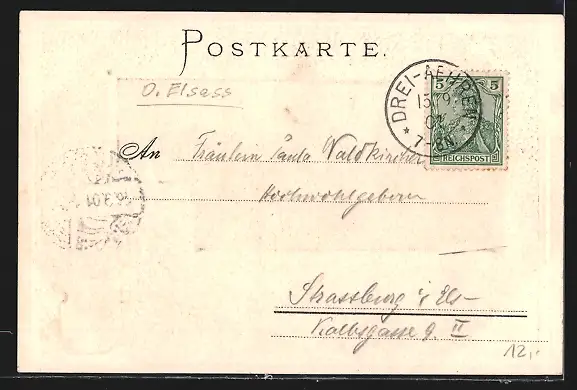 POSTKARTE.
O. Elsass
5 5
DREI-AEHREN
15/9
01
7-8N
REICHSPOST
An Fräulein Paula Waldkircher
Hochwohlgeboren
Strassburg i/ Els-
Kalbsgasse 9. II
12,-